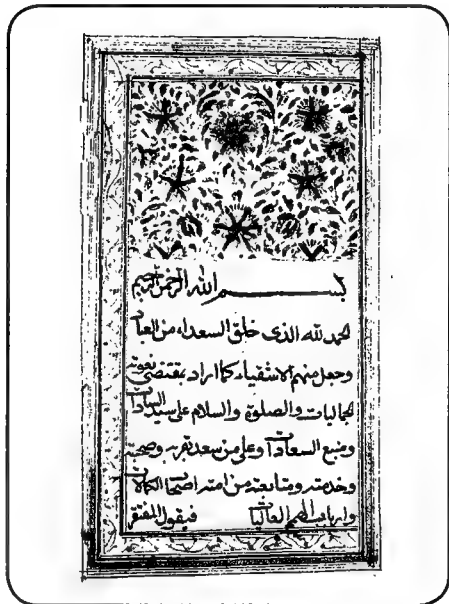 بسم الله الرحمن الرحيم
الحمد لله الذى خلق السعداء من العباد
وجعل منهم الاشقياء كما اراد بمقتضى نعوته
الجماليات والصلوة والسلام على سيد السادات
ومنبع السعادات وعلى من سعد بقربه وصحبته
وخدمته ومتابعته من امته اصحاب الكمالات
وارباب الهمم العاليات فيقول المفتقر